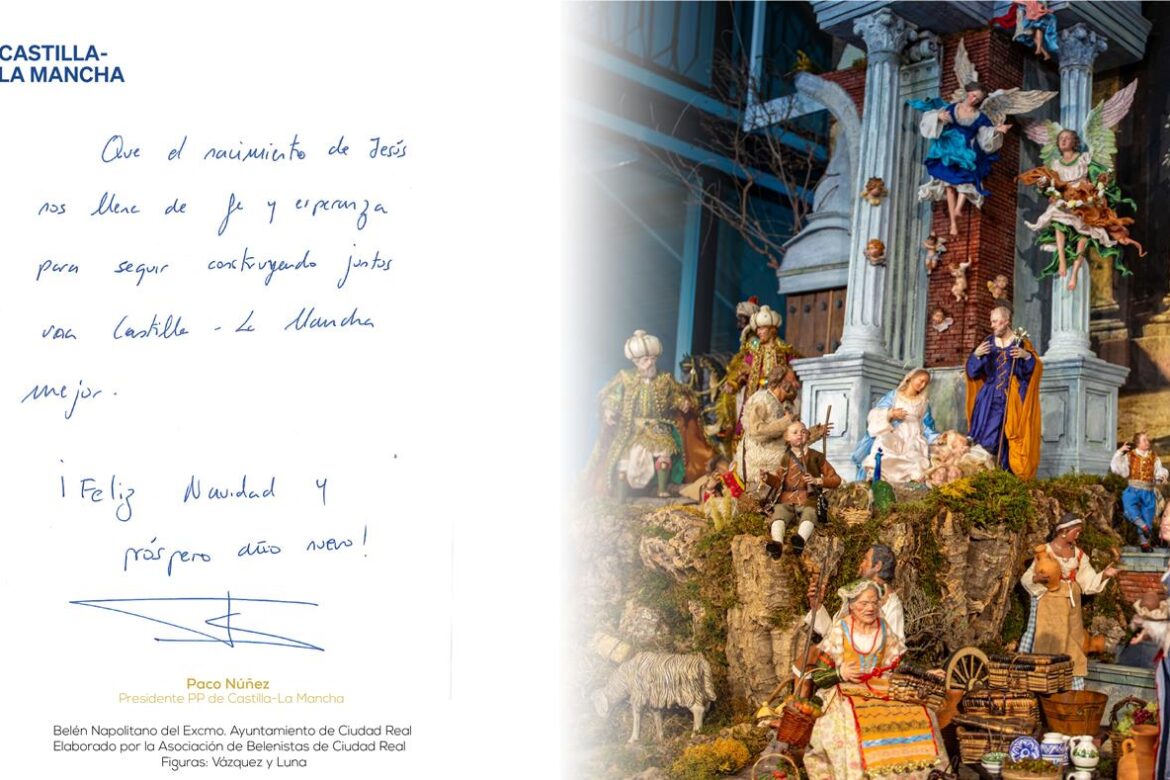 CASTILLA-
LA MANCHA
Que el nacimiento de Jesús
nos llene de fe y esperanza
para seguir construyendo juntos
una Castilla - La Mancha
mejor.
¡Feliz Navidad y
próspero año nuevo!
Paco Núñez
Presidente PP de Castilla-La Mancha
Belén Napolitano del Excmo. Ayuntamiento de Ciudad Real
Elaborado por la Asociación de Belenistas de Ciudad Real
Figuras: Vázquez y Luna